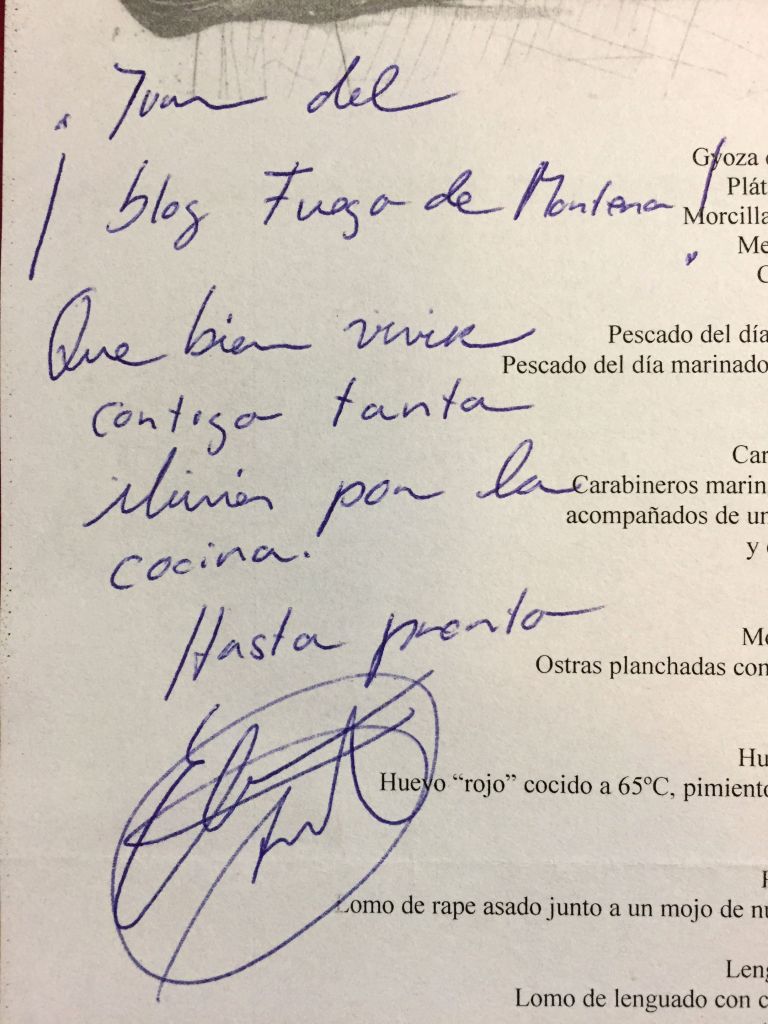 ¡Juan del
blog Fuego de Mantena!
Que bien vivir
contigo tanta
por la
cocina.
Hasta pronto
Gyoza
Plát
Morcilla
Me
C
Pescado del día
Pescado del día marinado
Car
Carabineros marin
acompañados de un
y
Mo
Ostras planchadas con
Hu
Huevo “rojo” cocido a 65ºC, pimiento
Lomo de rape asado junto a un mojo de nu
Leng
Lomo de lenguado con c